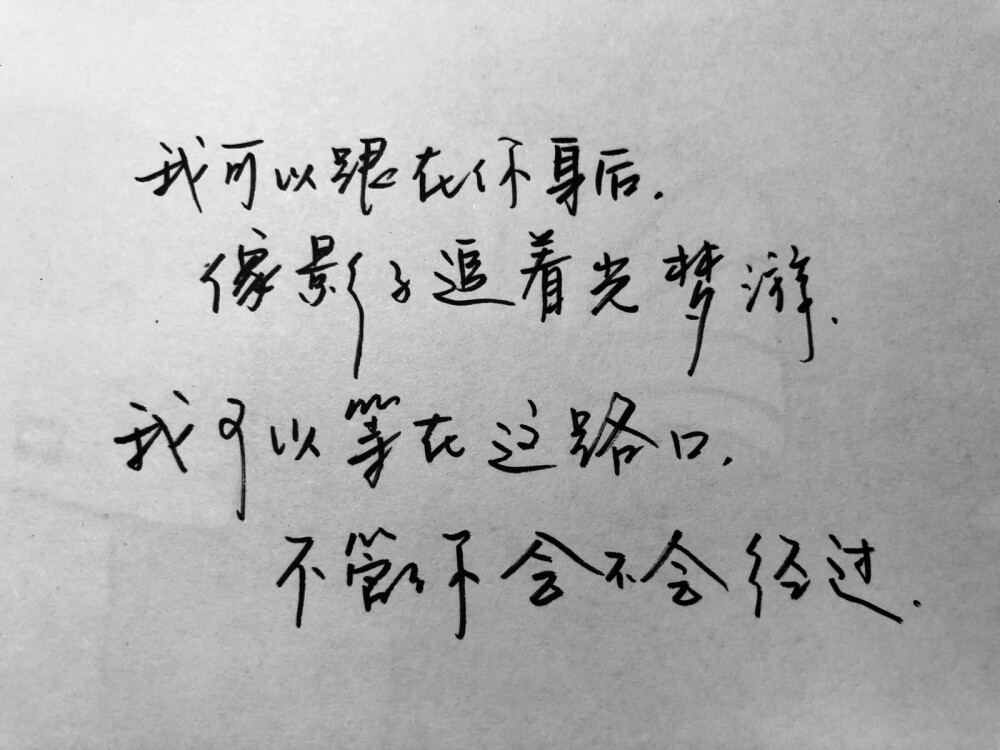 我可以跟在你身后.
像影子追着光梦游.
我可以等在这路口.
不管你会不会经过.